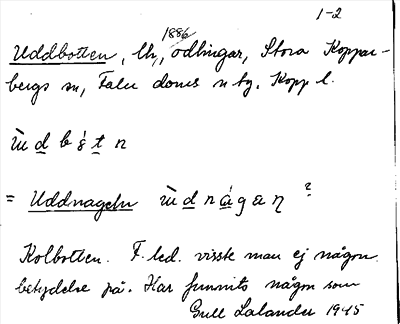 1-2
1886
Uddbotten, lh., odlingar, Stora Koppar-
bergs sn, Falu doms u tg. Kopp l.
ù d b ś t n
= Uddnageln ù d n á g a n ?
Kolbotten. F. led. visste man ej någon
betydelse på. Har funnits någon som
Gull Lalander 1945